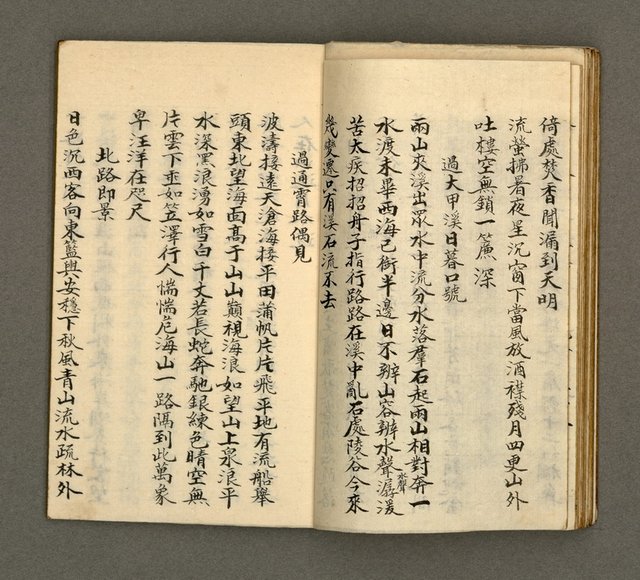 倚處焚香聞漏到天明
流螢拂著夜星沉窗下當風放酒襟殘月四更山外
吐樓空無鎖一簾深
過大甲溪日暮口號
兩山夾溪出眾水中流分水落群石起兩山相對奔一
水渡未畢西海已銜半邊日不辨山容辨水聲潺湲
水聲
苦太疾招招舟子指行路路在溪中亂石處陵谷今來
幾變遷只有溪石流不去
過通霄路偶見
波濤接遠天滄海接平田蒲帆片片飛平地有流船舉
頭東北望海面高于山山巔視海浪如望山上泉浪平
水深黑浪湧如雪白千丈若長蛇奔馳銀練色晴空無
片雲下垂如笠澤行人惴惴危海山一路隔到此萬象
卑汪洋在咫尺
北路即景
日色沉西客向東籃輿安穩下秋風青山流水疏林外